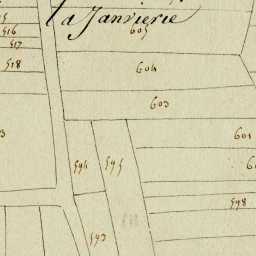 la Janvierie
605
516
517
518
604
603
601
596
595
598
593